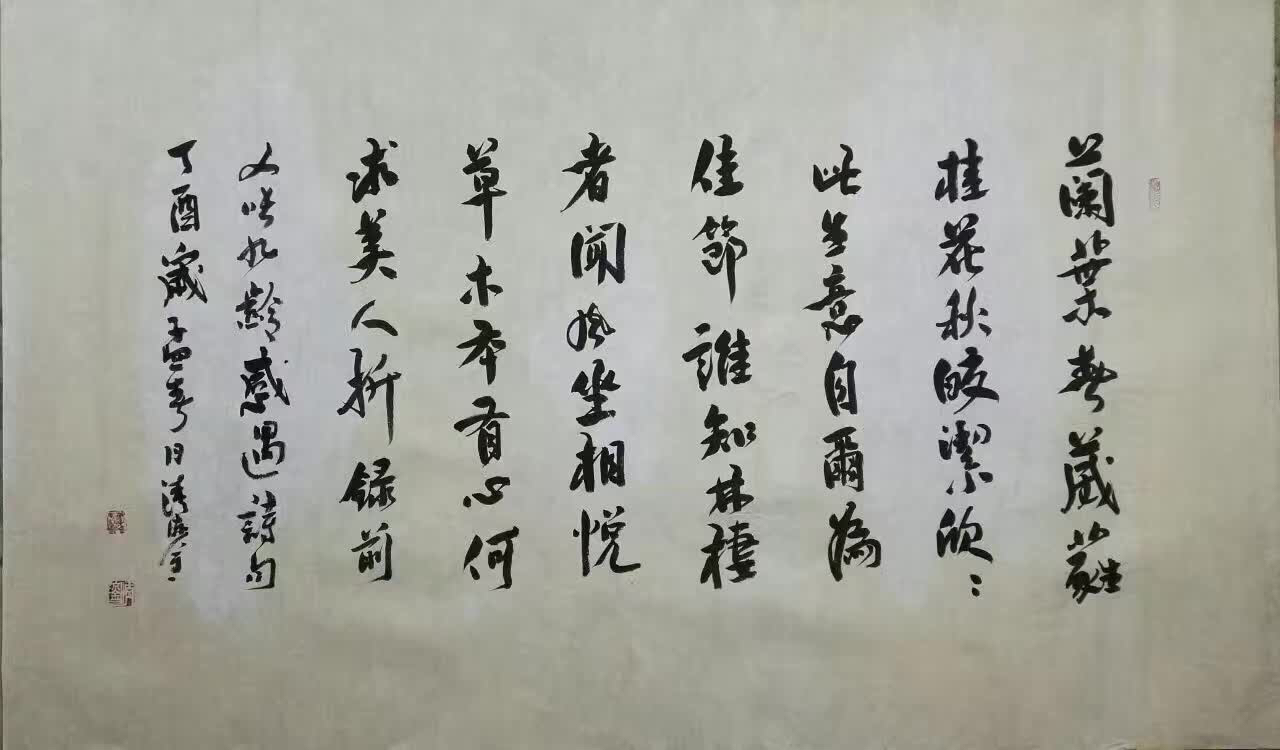 蘭葉春葳蕤
桂花秋皎潔欣〻
此生意自爾為
佳節誰知林棲
者聞風坐相悅
草木本有心何
求美人折錄前
人張九齡感遇詩句
丁酉歲孟春月